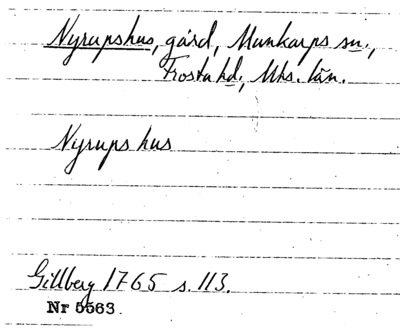 Nyrupshus, gård, Munkarps sn.,
Frosta hd., Mhs. län.
Nyrups hus
Gillberg 1765 s. 113.
Nr 5563.